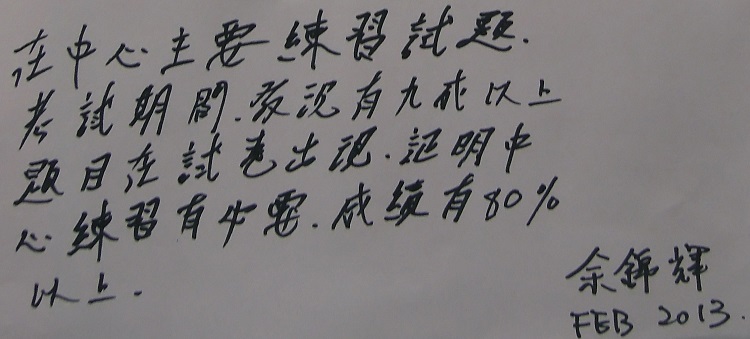 在中心主要練習試題.
考試期間.發現有九成以上
題目在試卷出現.証明中
心練習有必要.成績有80%
以上.
余錦輝
FEB 2013.